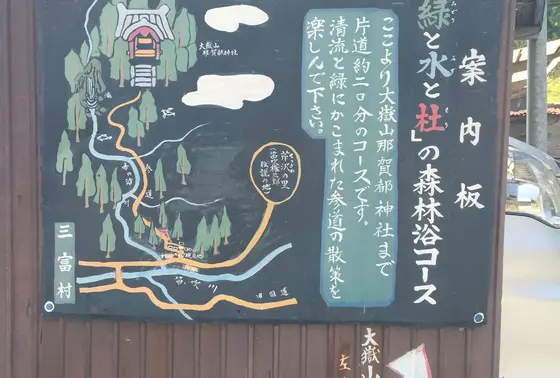 案内板
緑と水と杜」の森林浴コース
みどり
もり
ここより大嶽山那賀都神社まで
片道約二〇分のコースです。
清流と緑にかこまれた参道の散策を
楽しんで下さい。
大嶽山
那賀都神社
参道
芹沢の里
笛吹川
旧国道
三富村
大嶽山
左